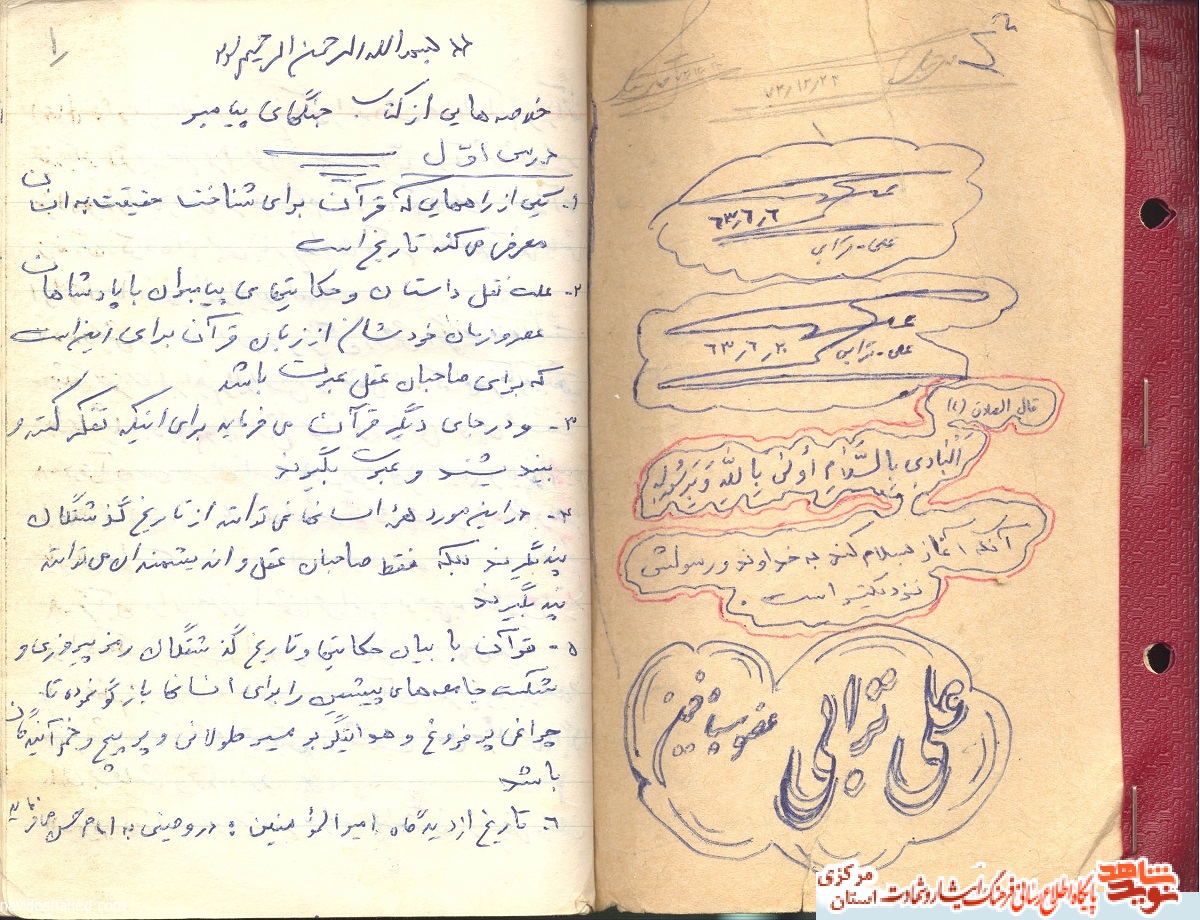 ۶۳٫۶٫۶
علی-ترابی
۶۳٫۶٫۲۰
علی-ترابی
قال الصادق (ع)
اَلْبادِی بِالسَّلامِ أَوْلیٰ بِاللّهِ وَ بِرَسُولِهِ
آنکه آغاز بسلام کند به خداوند و رسولش
نزدیکتر است.
علی ترابی
عضو سپاه خمین
۱
بسم الله الرحمن الرحیم
خلاصه هایی از کتاب جنگهای پیامبر
درس اوّل
۱- یکی از راههایی که قرآن برای شناخت حقیقت به انسان
معرفی می کند تاریخ است
۲- علت نقل داستان و حکایتهای پیامبران با پادشاهان
عصر و زمان خودشان از زبان قرآن برای این است
که برای صاحبان عقل عبرت باشد
۳- و در جای دیگر قرآن می فرماید برای اینکه تفکر کنند و
بیندیشند و عبرت بگیرند
۴- در این مورد همه انسانها نمی توانند از تاریخ گذشتگان
پند بگیرند بلکه فقط صاحبان عقل و اندیشمندان می توانند
پند بگیرند
۵- قرآن با بیان حکایتها و تاریخ گذشتگان رمز پیروزی و
شکست جامعه های پیشین را برای انسانها بازگو نموده تا
چراغی پر فروغ و هدایتگر بر مسیر طولانی و پر پیچ و خم آیندگان
باشد
۶- تاریخ از دیدگاه امیرالمؤمنین: در وصیتی به امام حسن می فرماید
نوید شاهد
پایگاه اطلاع رسانی فرهنگ ایثار و شهادت
استان مرکزی
navideshahed.com